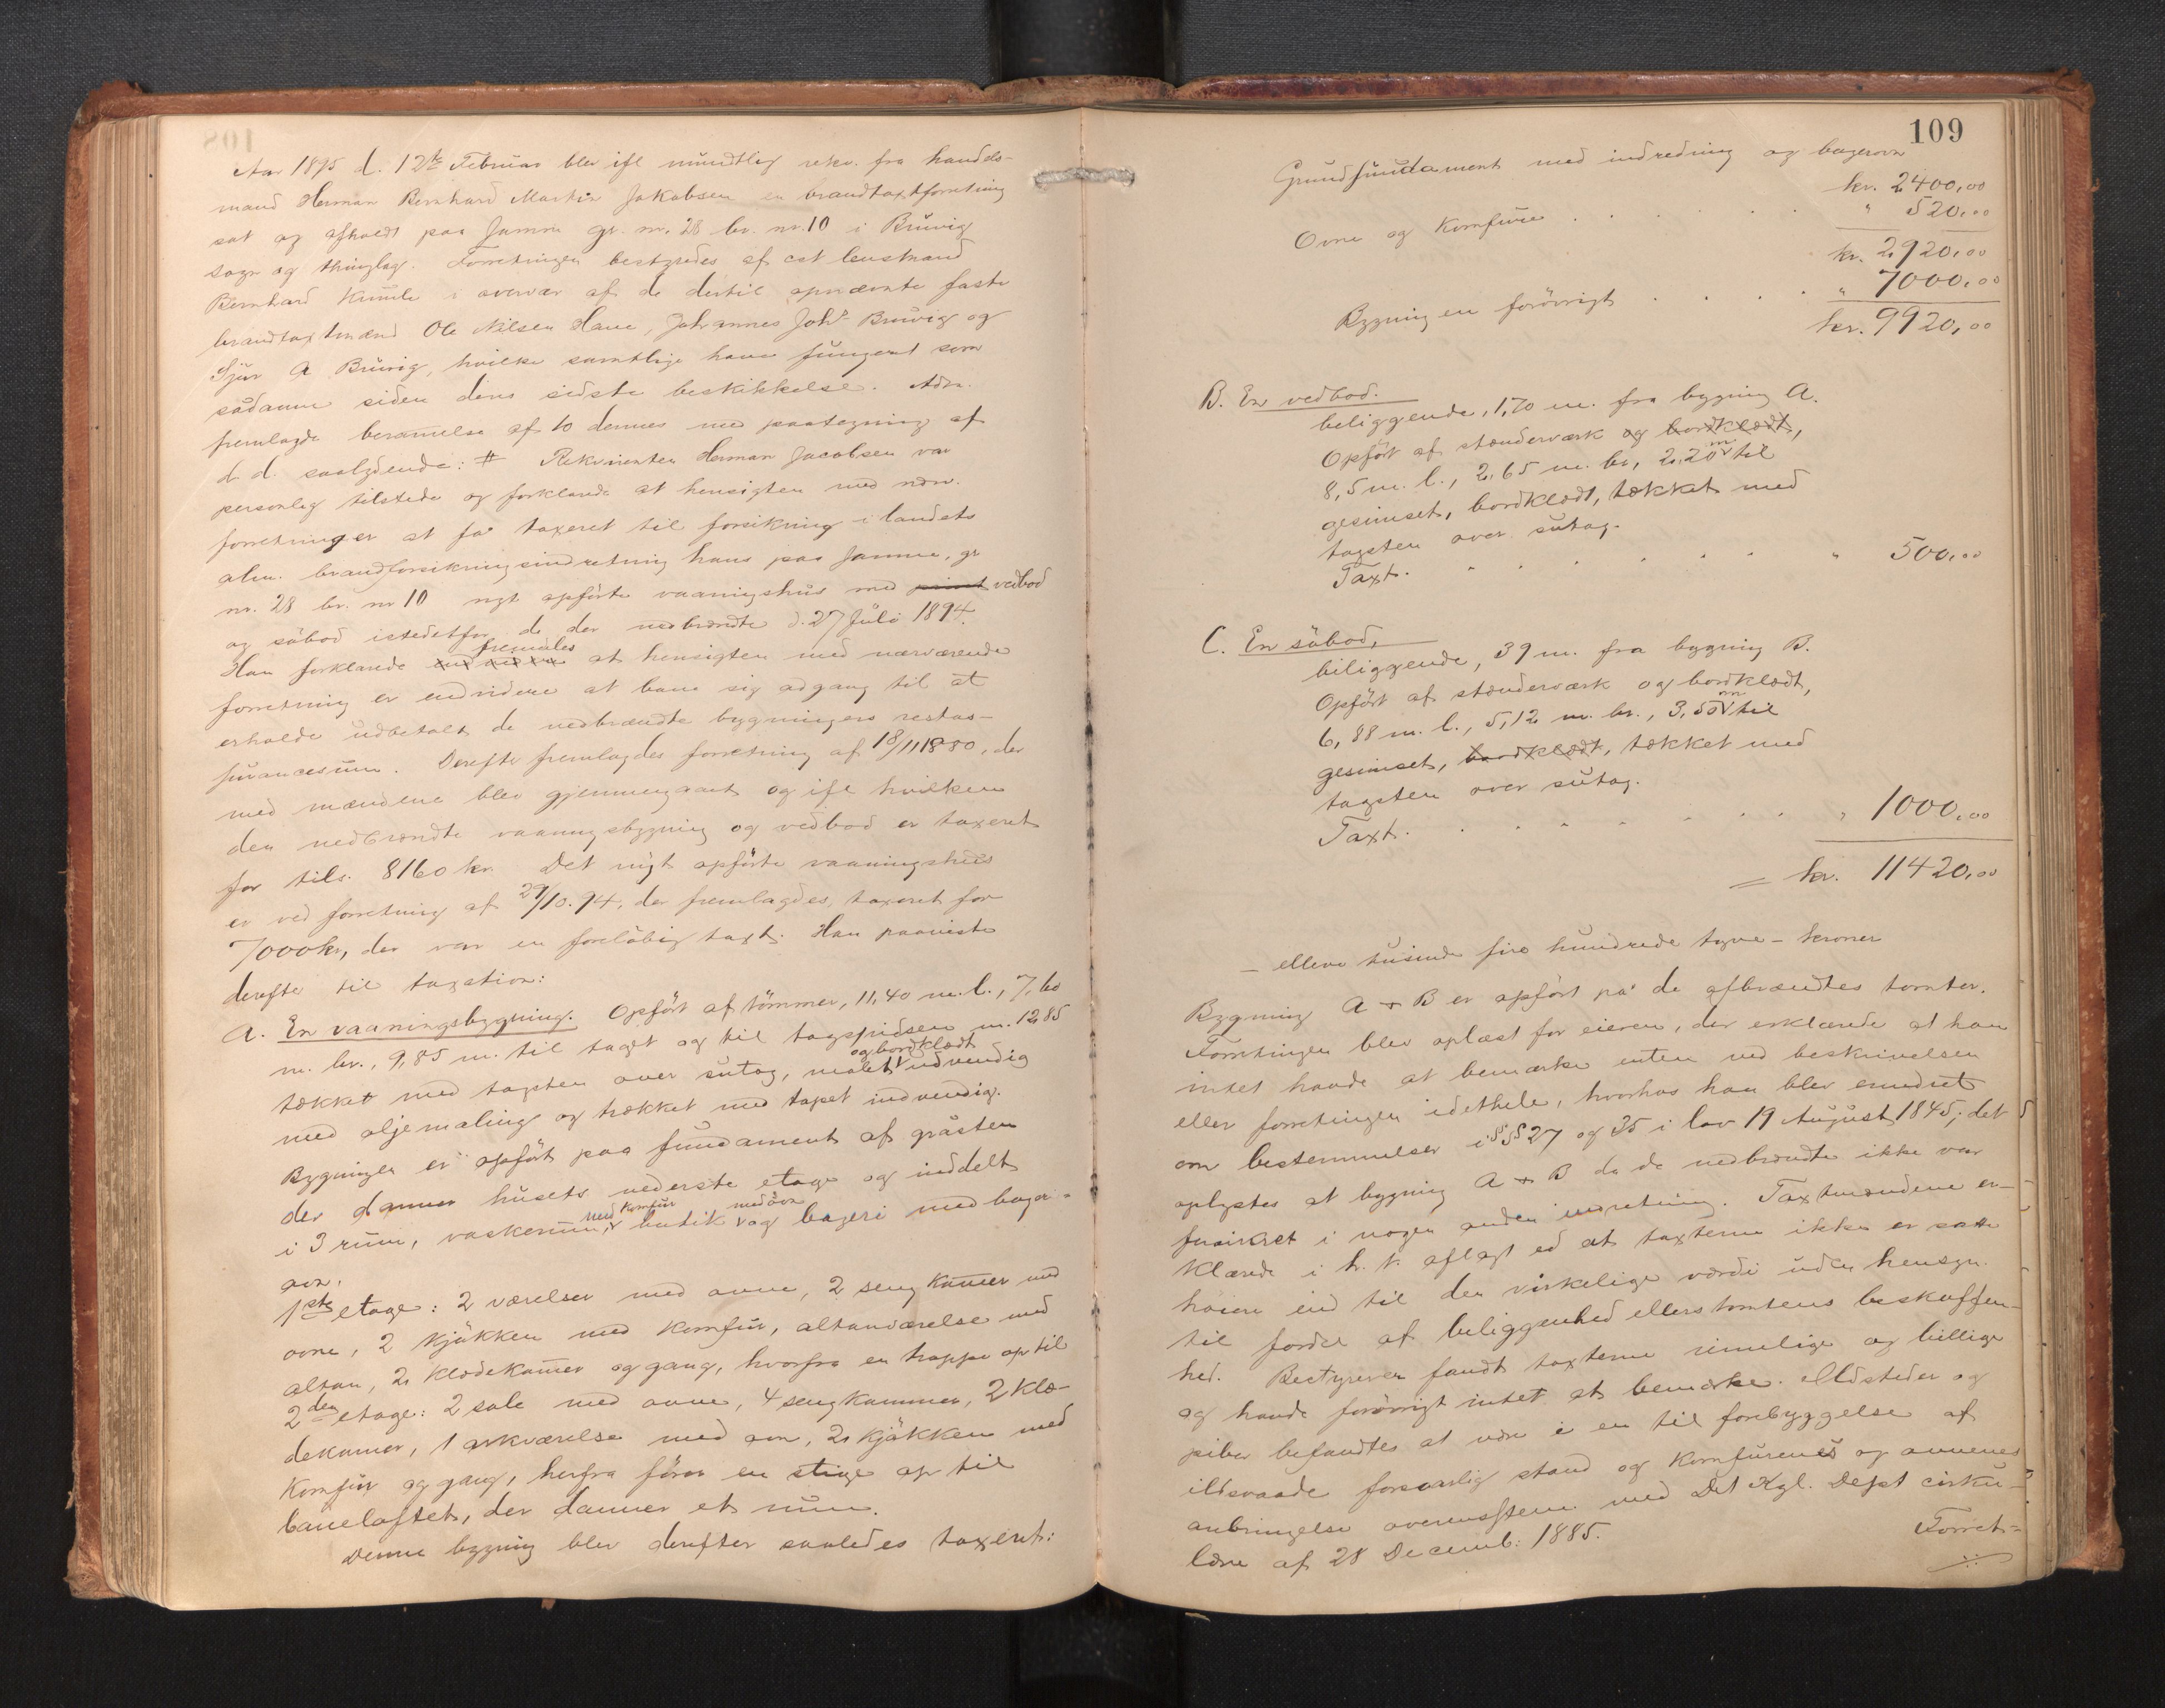 Aar 1895 d. 12te Februar blev ifl mundtlig rekv. fra handels-
mand Herman Bernhard Martin Jakobsen en brandtaxtforretning
sat og afholdt paa Jamne gr. nr. 28 br. nr. 10 i Bruvig
sogn og thinglag. Forretningen bestyredes af cst lensmand
Bernhard Kumle i overvær af de dertil opnævnte faste
brandtaxtmænd Ole Nilsen Hane, Johannes Johs Bruvig og
Sjur A Bruvig, hvilke samtlige have fungeret som
sådanne siden deres sidste beskikkelse. Adm.
fremlagde beramelse af 10 dennes med paategning af
d. d. saalydende: # Rekvirenten Herman Jacobsen var
personlig tilstede og forklarede at hensigten med nærv.
forretning er at få taxeret til forsikring i landets
alm. brandforsikringsindretning hans paa Jamne, gr
nr. 28 br. nr 10 nyt opførte vaaningshus med vedbod
og søbod istedetfor de der nedbrændte d. 27 Juli 1894.
fremdeles
Han forklarede at hensigten med nærværende
forretning er endvidere at bane sig adgang til at
erholde udbetalt de nedbrændte bygningers restas-
surancesum. Derefter fremlagdes forretning af 18/11 1880, der
med mændene blev gjennemgaaet og ifl hvilken
den nedbrændte vaaningsbygning og vedbod er taxeret
for tils. 8160 kr. Det nyt opførte vaaningshus
er ved forretning af 29/10. 94, der fremlagdes, taxeret for
7000 kr, der var en foreløbig taxt. Han paaviste
derefter til taxation:
A. En vaaningsbygning. Opført af tømmer, 11,40 m. l., 7,60
m. br., 9,85 m. til taget og til tagspidsen m. 12,85
og bordklædt
tækket med tagsten over sutag, malet udvendig
med oljemaling og trækket med tapet indvendig.
Bygningen er opført paa fundament af gråsten
der danner husets nederste etage og inddelt
med komfur med ovn
i 3 rum, vaskerum, butik og bageri med bager-
ovn.
1ste etage: 2 værelser med ovne, 2 sengkamer med
ovne, 2 kjøkken med komfur, altanværelse med
altan, 2 klædekamer og gang, hvorfra en trappe op til
2den etage: 2 sale med ovne, 4 sengkammer, 2 klæ-
dekamer, 1 arkværelse med ovn, 2 kjøkken med
komfur og gang, herfra fører en stige op til
baneloftet, der danner et rum.
Denne bygning blev derefter saaledes taxeret:
109
Grundfundament med indredning og bagerovn
kr. 2400,00
Ovne og komfurer . . . . . " 520,00
kr. 2920,00
Bygningen forøvrigt . . . . " 7000,00
kr. 9920,00
B. En vedbod.
beliggende, 1,70 m. fra bygning A.
Opført af stænderværk og bordklædt,
8,5 m. l., 2,65 m. br, 2,20 m til
gesimset, bordklædt, tækket med
tagsten over sutag.
Taxt. . . . . . . " 500,00
C. En søbod,
biliggende, 39 m. fra bygning B.
Opført af stænderværk og bordklædt,
6,88 m. l., 5,12 m. br., 3,50 m til
gesimset, bordklædt, tækket med
tagsten over sutag.
Taxt. . . . . . . . " 1000,00
= kr. 11420,00
- elleve tusinde fire hundrede tyve - kroner
Bygning A & B er opført på de afbrændtes tomter.
Forretningen blev oplæst for eieren, der erklærede at han
intet havde at bemærke enten ved beskrivelsen
eller forretningen idethele, hvorhos han blev erindret
om bestemmelser i §§ 27 og 35 i lov 19 August 1845; det
oplystes at bygning A & B da de nedbrændte ikke var
forsikret i nogen anden indretning. Taxtmændene er-
klærede i h. t. aflagt ed at taxterne ikke er satte
høiere end til den virkelige værdi uden hensyn
til fordel af beliggenhed eller tomtens beskaffen-
hed. Bestyreren fandt taxterne rimelige og billige
og havde forøvrigt intet at bemærke. Ildsteder og
piber befandtes at være i en til forebyggelse af
ildsvaade forsvarlig stand og komfurenes og ovnenes
anbringelse overensstem. med Det Kgl. Depst cirku-
lære af 28 Decemb: 1885.
Forret-